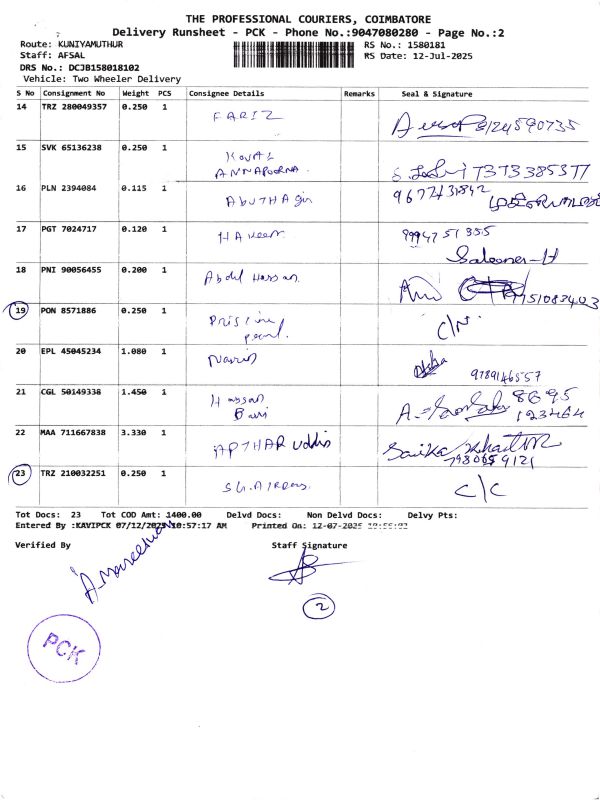 THE PROFESSIONAL COURIERS, COIMBATORE
Delivery Runsheet - PCK - Phone No.:9047080280 - Page No.:2
Route: KUNIYAMUTHUR RS No.: 1580181
Staff: AFSAL RS Date: 12-Jul-2025
DRS No.: DCJB158018102
Vehicle: Two Wheeler Delivery
S No Consignment No Weight PCS Consignee Details Remarks Seal & Signature
14 TRZ 280049357 0.250 1 FARIZ
15 SVK 65136238 0.250 1 KOVAI
ANNAPOORNA. 7373385377
16 PLN 2394084 0.115 1 9677431842
17 PGT 7024717 0.120 1 99947 51 355
18 PNI 90056455 0.200 1 Abdul Hassan.
19 PON 8571886 0.250 1 Pristine
pearl. C/N.
20 EPL 45045234 1.080 1 9789146557
21 CGL 50149338 1.450 1 Hassan
8695
123464
22 MAA 711667838 3.330 1 APTHAR Uddin
7980659121
23 TRZ 210032251 0.250 1 C/C
Tot Docs: 23 Tot COD Amt: 1400.00 Delvd Docs: Non Delvd Docs: Delvy Pts:
Entered By :KAVIPCK 07/12/2025 10:57:17 AM Printed On: 12-07-2025
Verified By Staff Signature
2
PCK